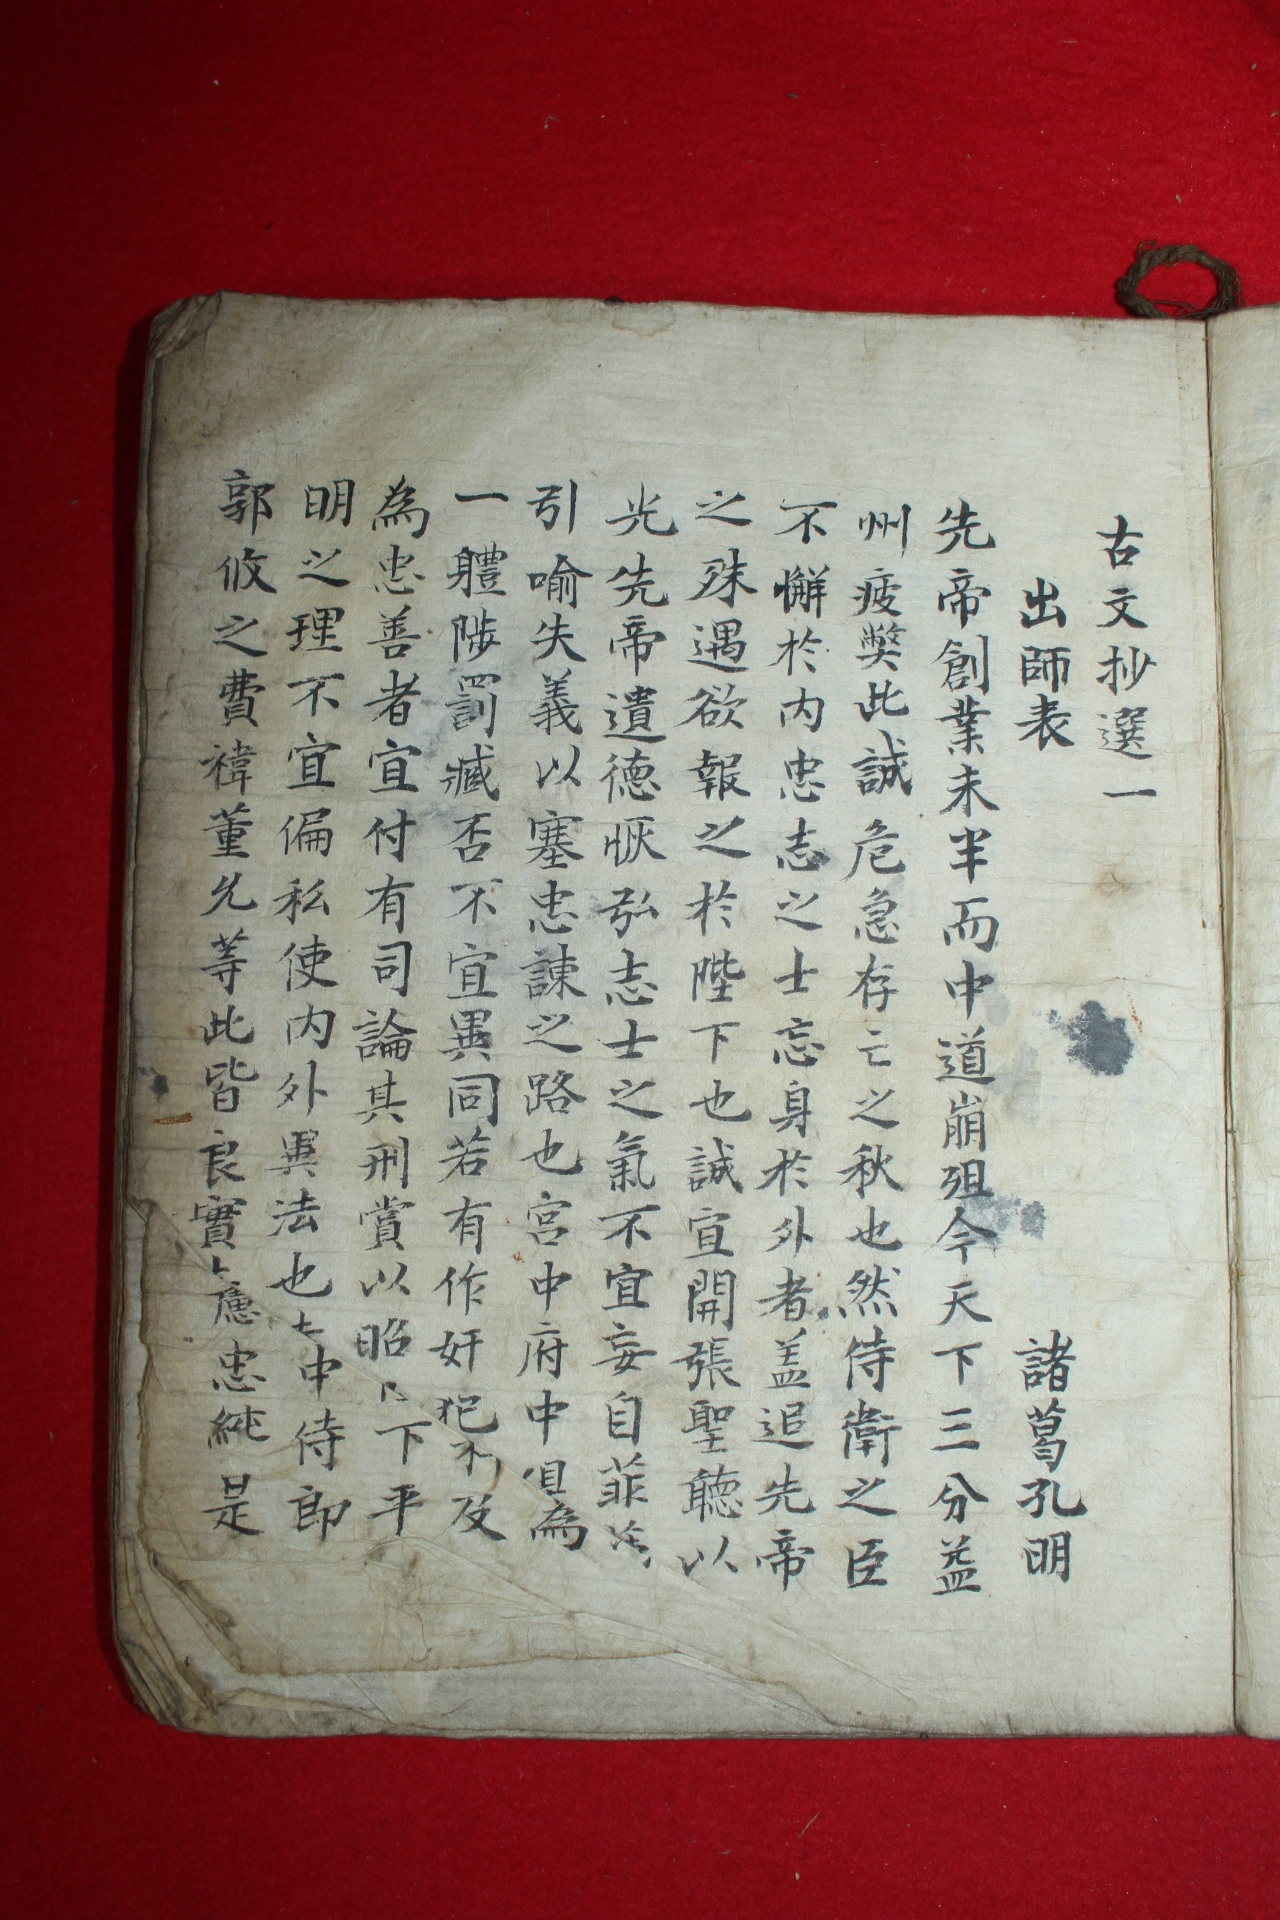 古文抄選一
出師表 諸葛孔明
先帝創業未半而中道崩殂今天下三分益
州疲獘此誠危急存亡之秋也然侍衛之臣
不懈於内忠志之士忘身於外者盖追先帝
之殊遇欲報之於陛下也誠宜開張聖聽以
光先帝遺德恢弘志士之氣不宜妄自菲
引喻失義以塞忠諫之路也宮中府中俱為
一軆陟罰臧否不宜異同若有作奸犯科及
為忠善者宜付有司論其刑賞以昭下平
明之理不宜偏私使内外異法也中侍郎
郭攸之費褘董允等此皆良實慮忠純是